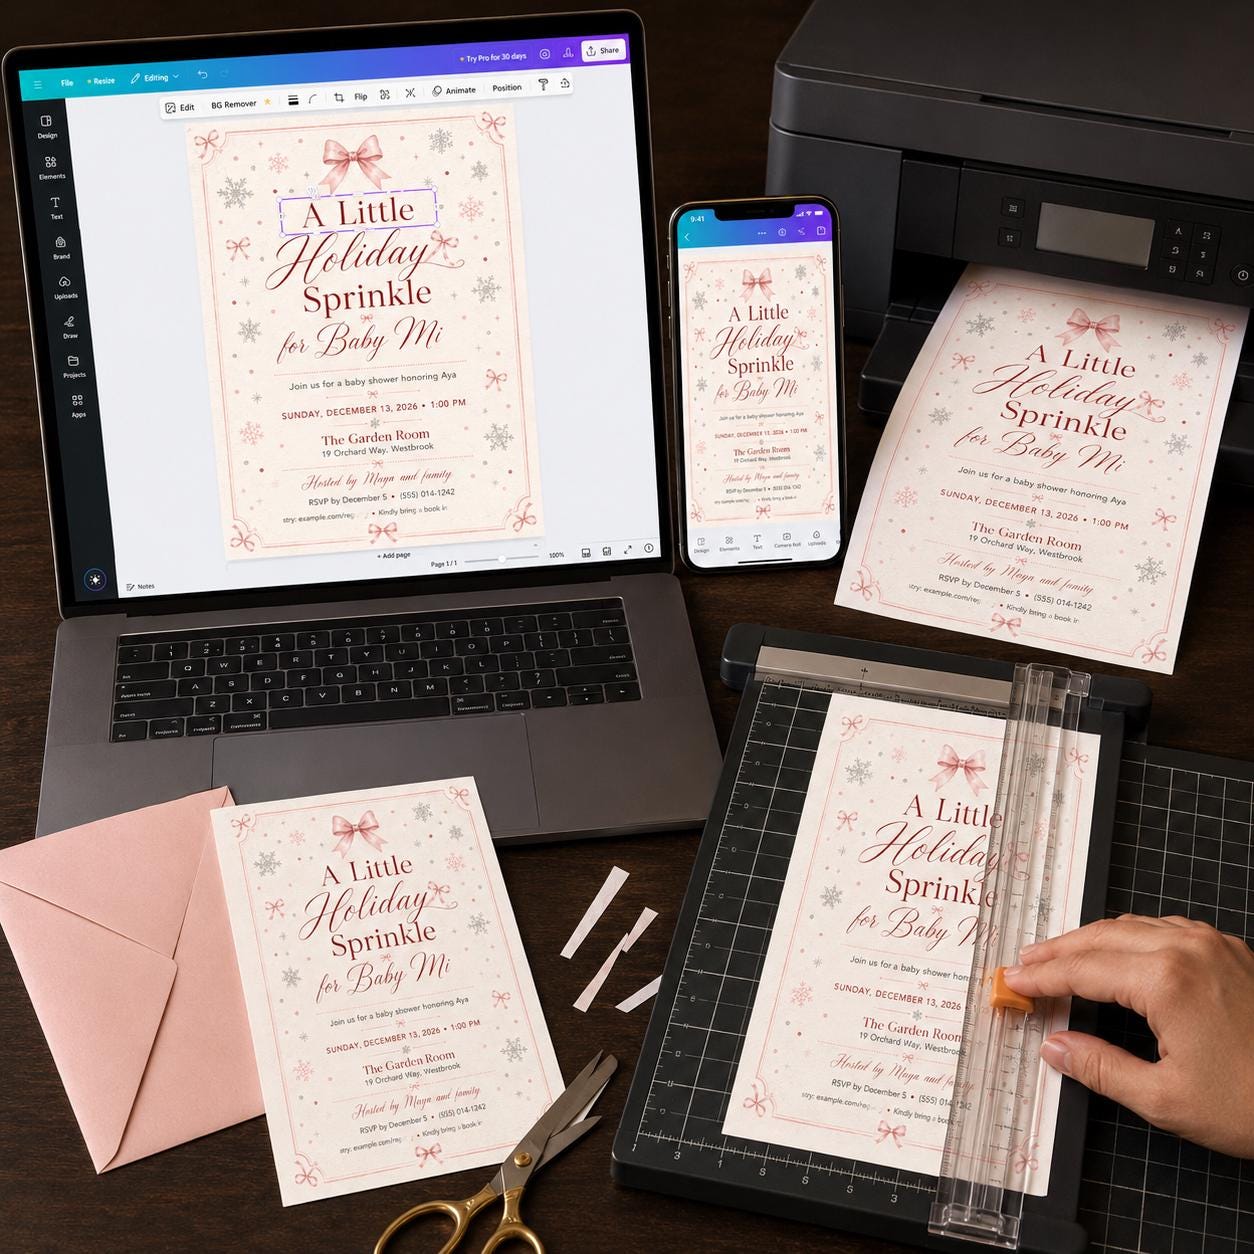 File
Resize
Editing
Try Pro for 30 days
Share
Edit
BG Remover
Flip
Animate
Position
Design
Elements
Text
Brand
Uploads
Draw
Projects
Apps
A Little
Holiday
Sprinkle
for Baby Mi
Join us for a baby shower honoring Aya
SUNDAY, DECEMBER 13, 2026 • 1:00 PM
The Garden Room
19 Orchard Way, Westbrook
Hosted by Maya and family
RSVP by December 5 • (555) 014-1242
stry: example.com/reg • Kindly bring a book in
+ Add page
Notes
Page 1 / 1
100%
9:41
A Little
Holiday
Sprinkle
for Baby Mi
Join us for a baby shower honoring Aya
SUNDAY, DECEMBER 13, 2026 • 1:00 PM
The Garden Room
19 Orchard Way, Westbrook
Hosted by Maya and family
RSVP by December 5 • (555) 014-1242
Design
Elements
Text
Camera Roll
Uploads
A Little
Holiday
Sprinkle
for Baby Mi
Join us for a baby shower honoring Aya
SUNDAY, DECEMBER 13, 2026 • 1:00 PM
The Garden Room
19 Orchard Way, Westbrook
Hosted by Maya and family
RSVP by December 5 • (555) 014-1242
stry: example.com/reg • Kindly bring a book in
A Little
Holiday
Sprinkle
for Baby Mi
Join us for a baby shower honoring Aya
SUNDAY, DECEMBER 13, 2026 • 1:00 PM
The Garden Room
19 Orchard Way, Westbrook
Hosted by Maya and family
RSVP by December 5 • (555) 014-1242
stry: example.com/reg • Kindly bring a book in
A Little
Holiday
Sprinkle
for Baby Mi
Join us for a baby shower hon
SUNDAY, DECEMBER 13, 2026
The Garden Room
19 Orchard Way, Westbrook
Hosted by Maya and family
RSVP by December 5 • (555) 014-1242
stry: example.com/reg • Kindly bring a book in